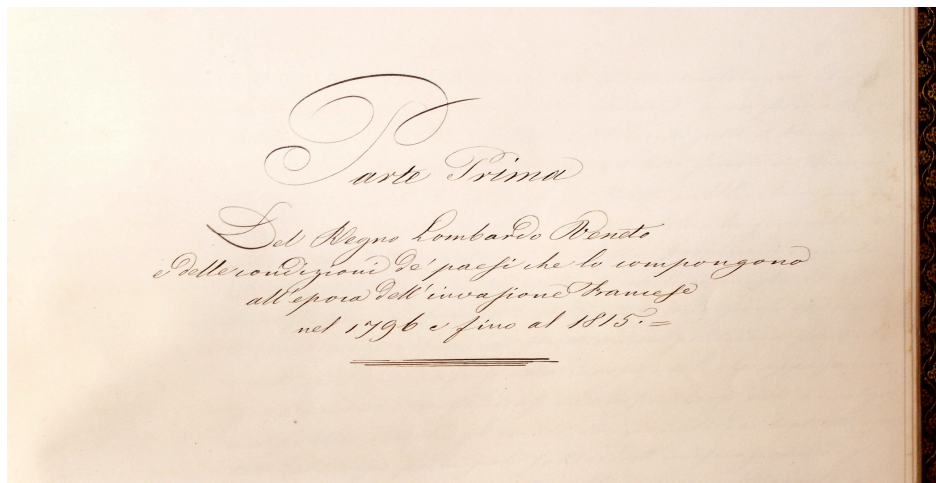 Parte Prima
Del Regno Lombardo Veneto
e delle condizioni de' paesi che lo compongono
all'epoca dell'invasione Francese
nel 1796 e fino al 1815. =